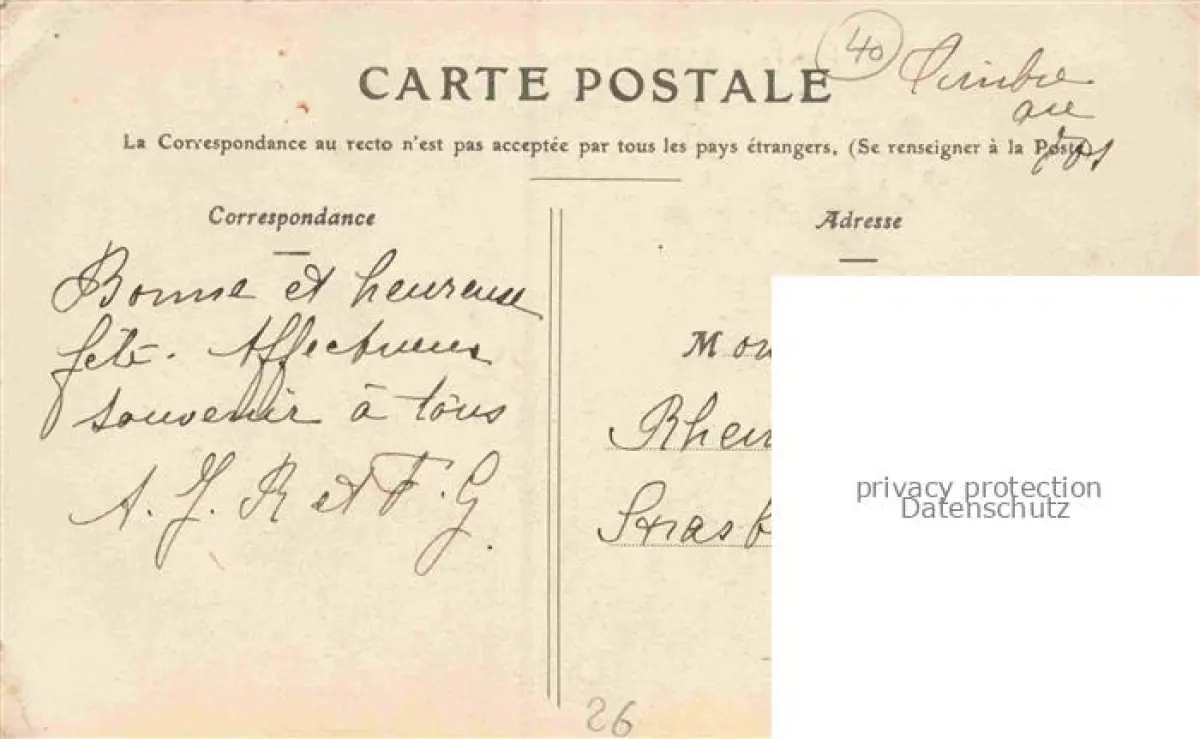 40
Timbre
au
CARTE POSTALE
La Correspondance au recto n'est pas acceptée par tous les pays étrangers, (Se renseigner à la Poste
Correspondance
Adresse
Bonne et heureuse
fête. Affectueux
souvenir à tous
A. J. R et F. G.
Mon
Rhein
Strasb
privacy protection
Datenschutz
26